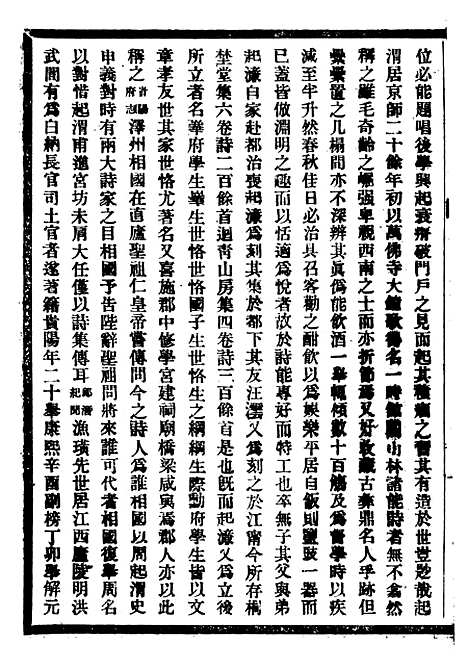 位必能題唱後學興起衰靡破門戶之見而起其積痼之習其有造於世豈尟哉起
渭居京師二十餘年初以萬佛寺大鐘歌得名一時館閣山林諸能詩者無不翕然
稱之雖毛奇齡之崛强卑視西南之士而亦折節焉又好收藏古彝鼎名人手跡但
纍纍置之几榻間亦不深辨其眞僞能飲酒一舉輒傾數十百觴及爲督學時以疾
減至半升然春秋佳日必治具召客勸之酣飲以爲娛樂平居自飯則鹽豉一器而
已蓋皆倣淵明之趣而以恬適爲悅者故於詩能專好而特工也卒無子其父與弟
起濂自家赴都治喪起濂爲刻其集於都下其友汪灝又爲刻之於江甯今所存桐
埜堂集六卷詩二百餘首迴靑山房集四卷詩三百餘首是也既而起濂又爲立後
所立者名華府學生華生世恪世恪國子生世恪之綱綱生際勳府學生皆以文
章孝友世其家世恪尤著名又喜施郡中修學宮建祠廟橋梁咸與焉郡人亦以此
稱之貴陽府志澤州相國在直廬聖祖仁皇帝嘗傳問今之詩人爲誰相國以周起渭史
申義對時有兩大詩家之目相國予告陛辭聖祖問將來誰可代者相國復舉周名
以對惜起渭甫進宮坊未膺大任僅以詩集傳耳郎潛紀聞漁璜先世居江西廬陵明洪
武間有爲白納長官司土官者遂著籍貴陽年二十舉康熙辛酉副榜丁卯舉解元